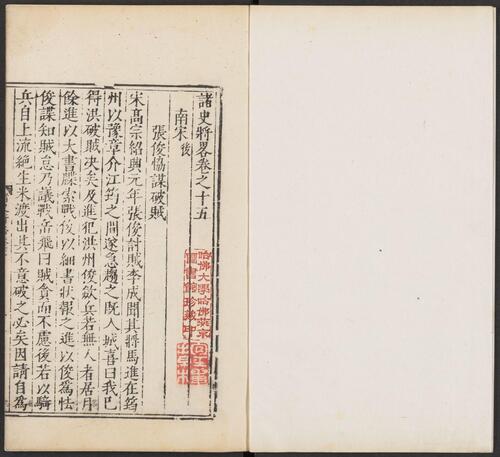 諸史將畧卷之十五
南宋後
張俊恊謀破賊
宋髙宗紹興元年張俊討賊李成聞其將馬進在筠
州以豫章介江筠之間遂急趨之旣入城喜曰我已
得洪破賊决矣及進犯洪州俊歛兵若無人者居月
餘進以大書牒索戰俊以細書狀報之進以俊爲怯
俊諜知賊怠乃議戰岳飛曰賊貪而不慮後若以騎
兵自上流絶生米渡出其不意破之必矣因請自爲
哈佛大學哈佛燕京
圖書館珍藏印